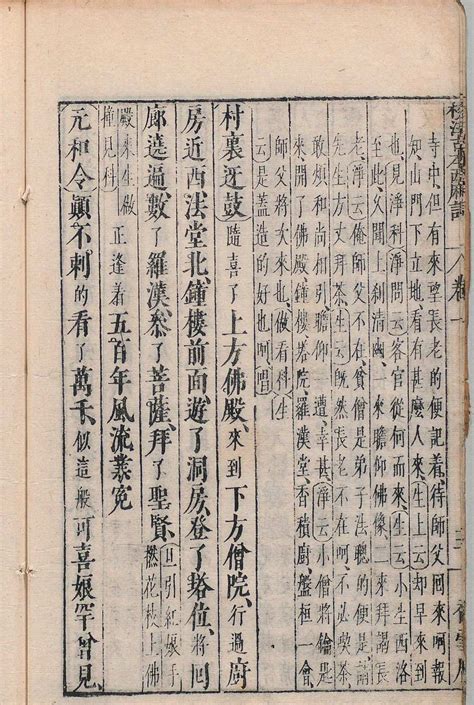 校注古本西廂記 卷一 三 香雪居
寺中但有來望長老的便記着待師父回來呵報
知山門下立地看有甚麼人來生上云却早來到
也見淨科淨問云客官從何而來生云小生西洛
至此聞上剎清幽一來瞻仰佛像二來拜謁長
老淨云俺師父不在貧僧是弟子法聰的便是請
先生方丈拜茶生云旣然長老不在呵不必喫茶
敢煩和尚相引瞻仰一遭幸甚淨云小僧將鑰匙
來開了佛殿鐘樓塔院羅漢堂香積廚盤桓一會
師父將次來也做看科生
云是蓋造的也呵唱
村裏迓鼓隨喜了上方佛殿來到下方僧院行過廚
房近西法堂北鐘樓前面遊了洞房登了塔位將回
廊遶遍數了羅漢叅了菩薩拜了聖賢旦引紅娘手撚花枝上佛
殿來生做撞見科正逢着五百年風流業冤
元和令顛不剌的看了萬千似這般可喜娘罕曾見